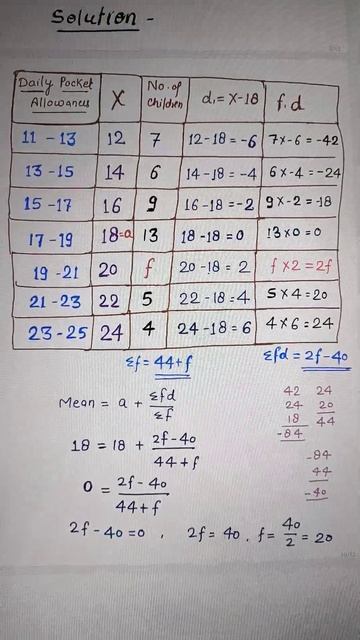 Solution -
Daily Pocket Allowances X No. of Children d₁ = x-18 f.d
11 - 13 12 7 12-18 = -6 7x-6 = -42
13 - 15 14 6 14-18 = -4 6x-4 = -24
15 - 17 16 9 16-18 = -2 9x-2 = -18
17 - 19 18=a 13 18-18 = 0 13x0 = 0
19 - 21 20 f 20-18 = 2 f x2 = 2f
21 - 23 22 5 22-18 = 4 5x4 = 20
23 - 25 24 4 24-18 = 6 4x6 = 24
Σf = 44+f Σfd = 2f-40
42 24
24 20
18 44
-84
Mean = a + Σfd/Σf
-84
44
-40
18 = 18 + 2f-40/44+f
0 = 2f-40/44+f
2f-40 = 0 , 2f = 40 , f = 40/2 = 20